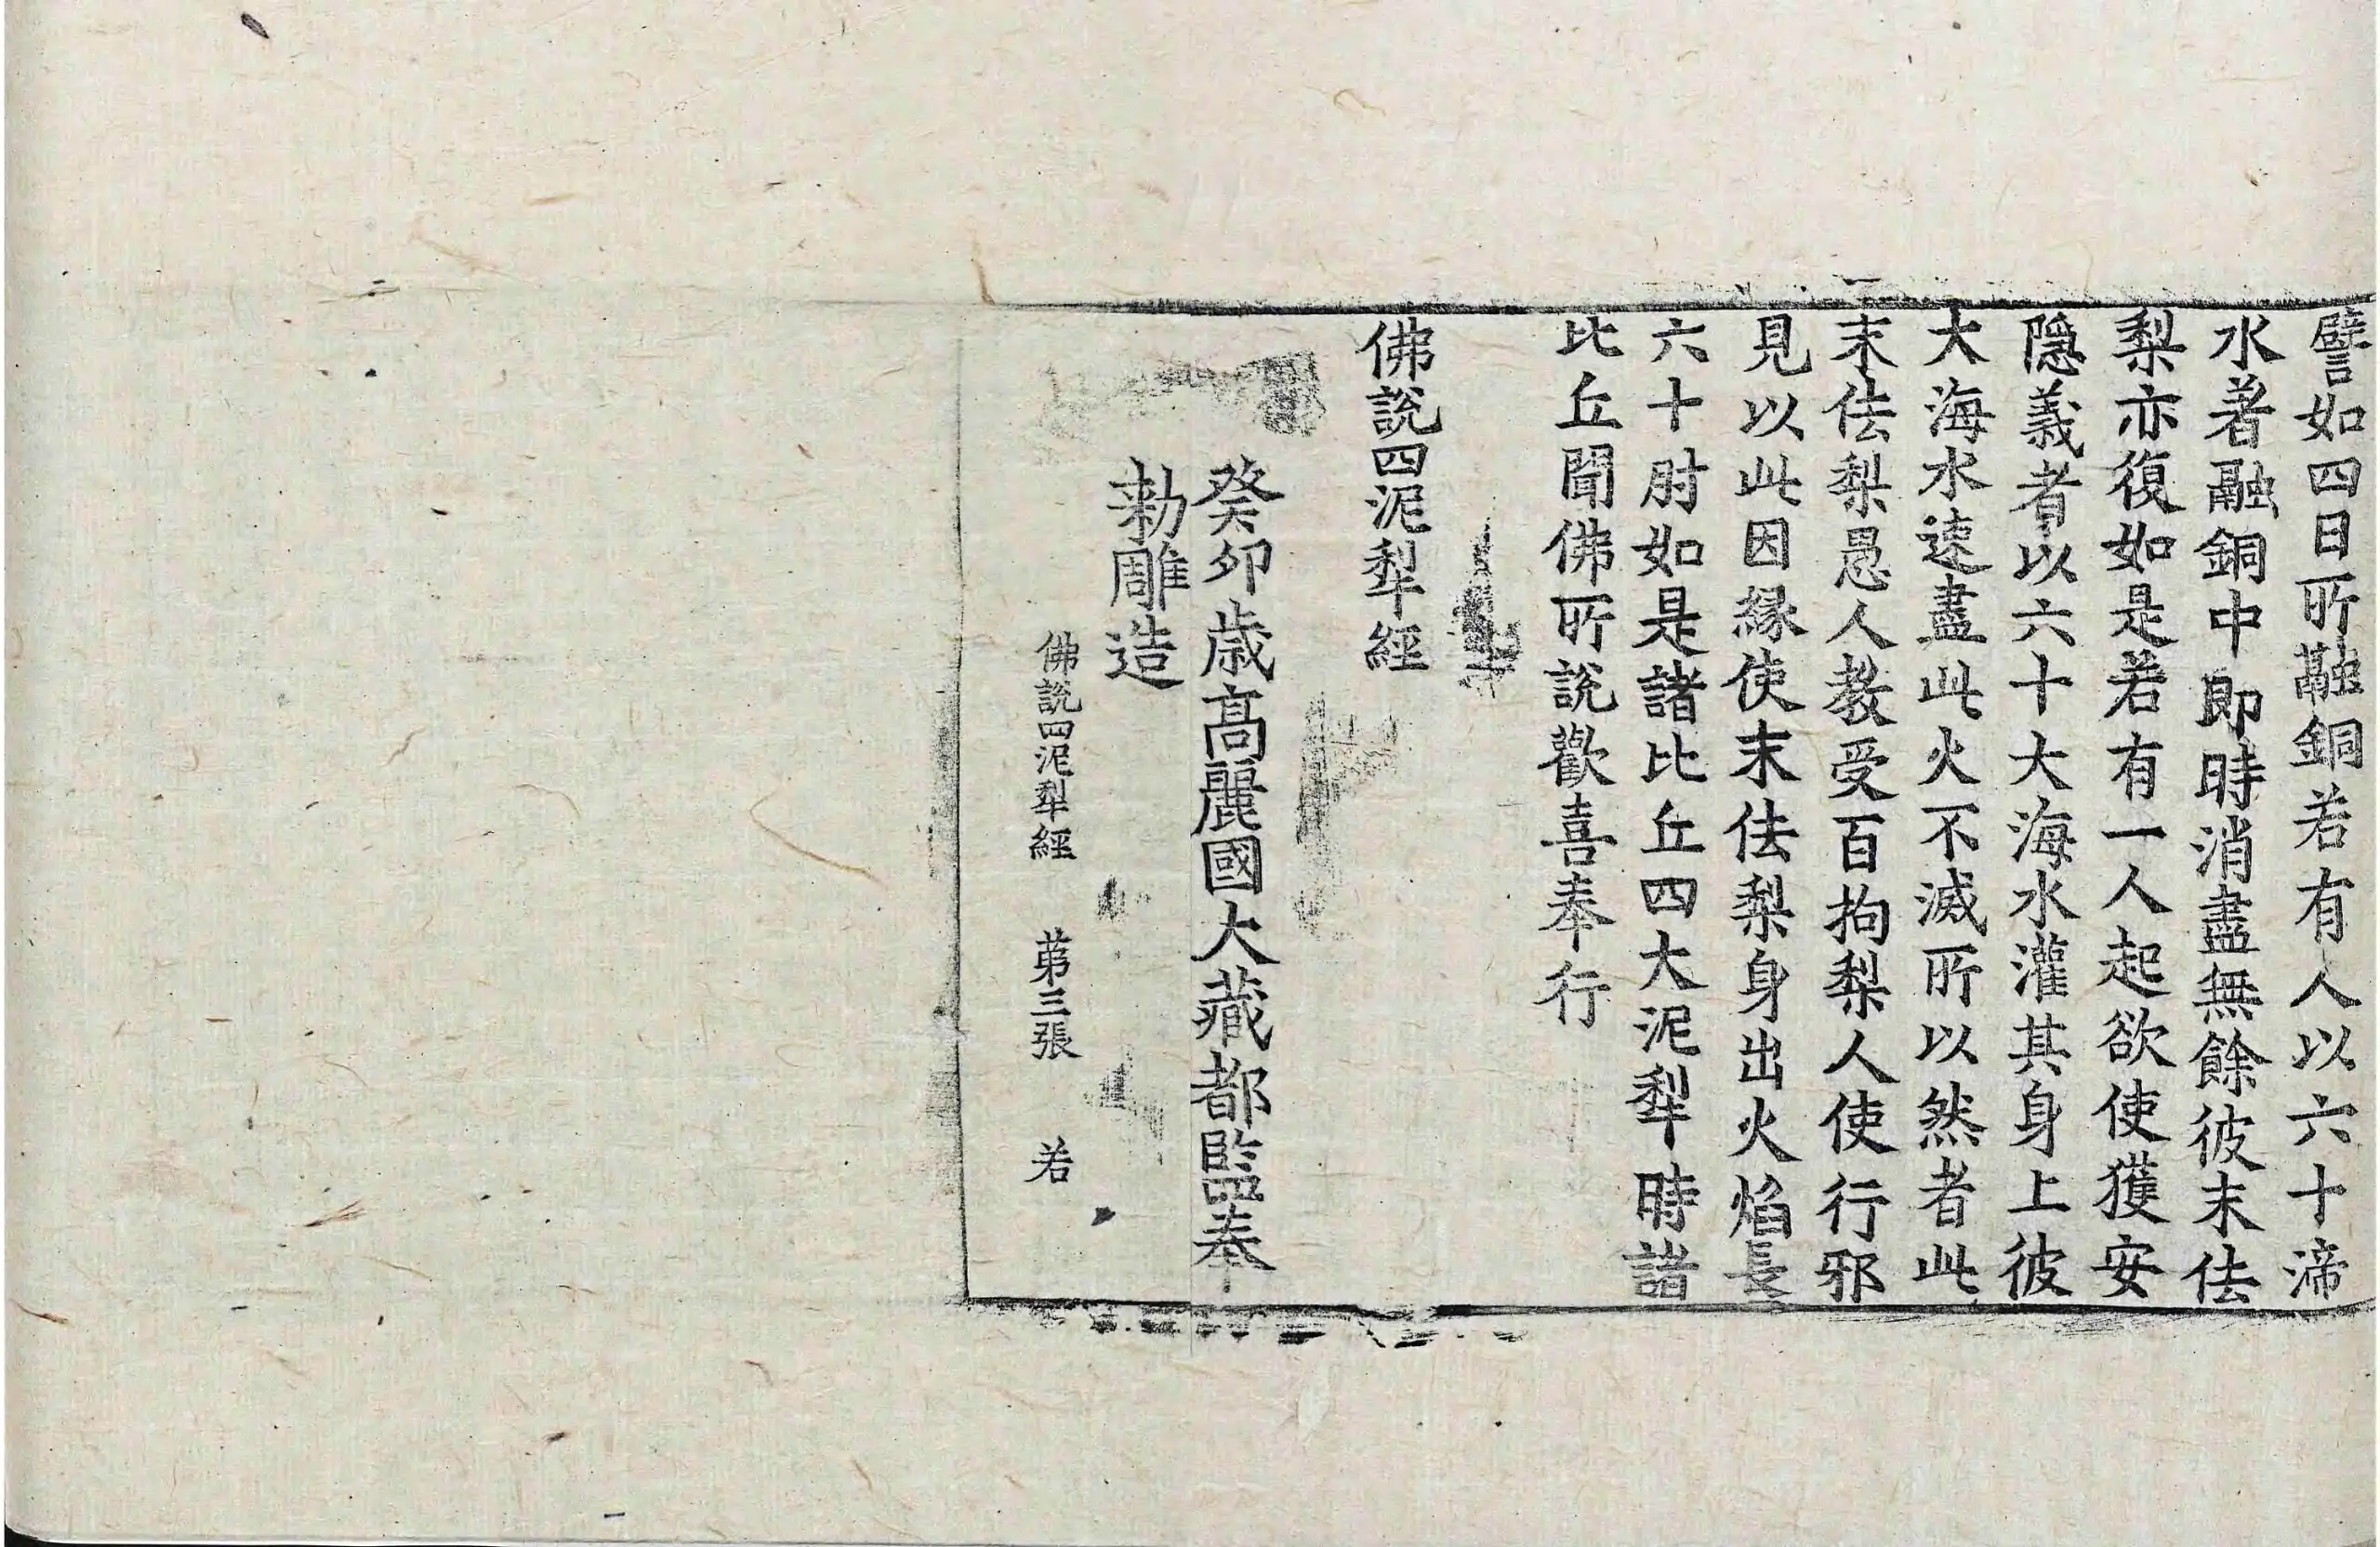 譬如四日所融銅若有人以六十渧
水著融銅中即時消盡無餘彼末佉
梨亦復如是若有一人起欲使獲安
隱義者以六十大海水灌其身上彼
大海水速盡此火不滅所以然者此
末佉梨愚人教受百拘梨人使行邪
見以此因緣使末佉梨身出火焰長
六十肘如是諸比丘四大泥犁時諸
比丘聞佛所說歡喜奉行
佛說四泥犁經
癸卯歲高麗國大藏都監奉
勑雕造
佛說四泥犁經 第三張 若